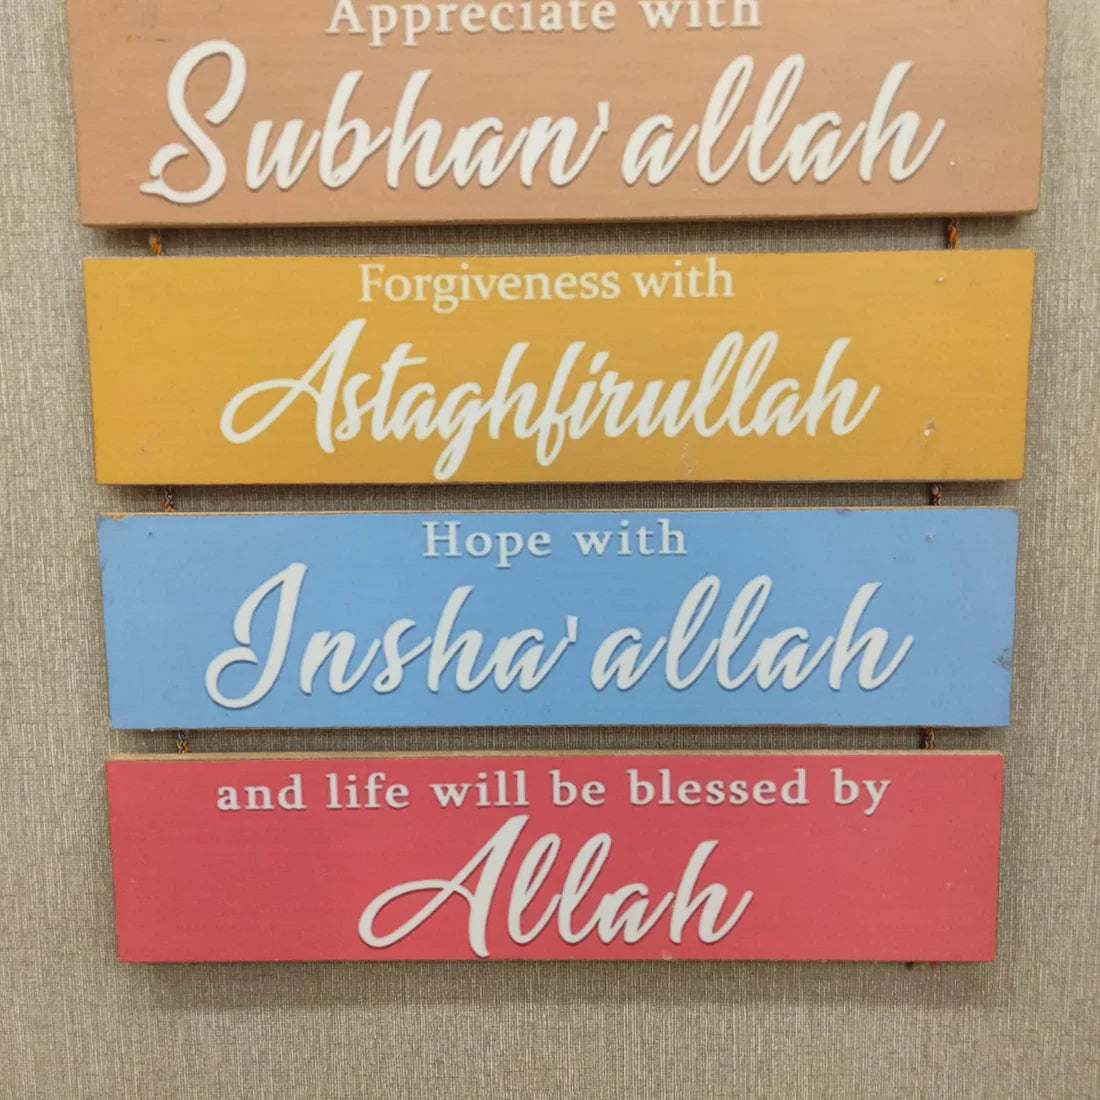 Appreciate with
Subhan'allah
Forgiveness with
Astaghfirullah
Hope with
Insha'allah
and life will be blessed by
Allah